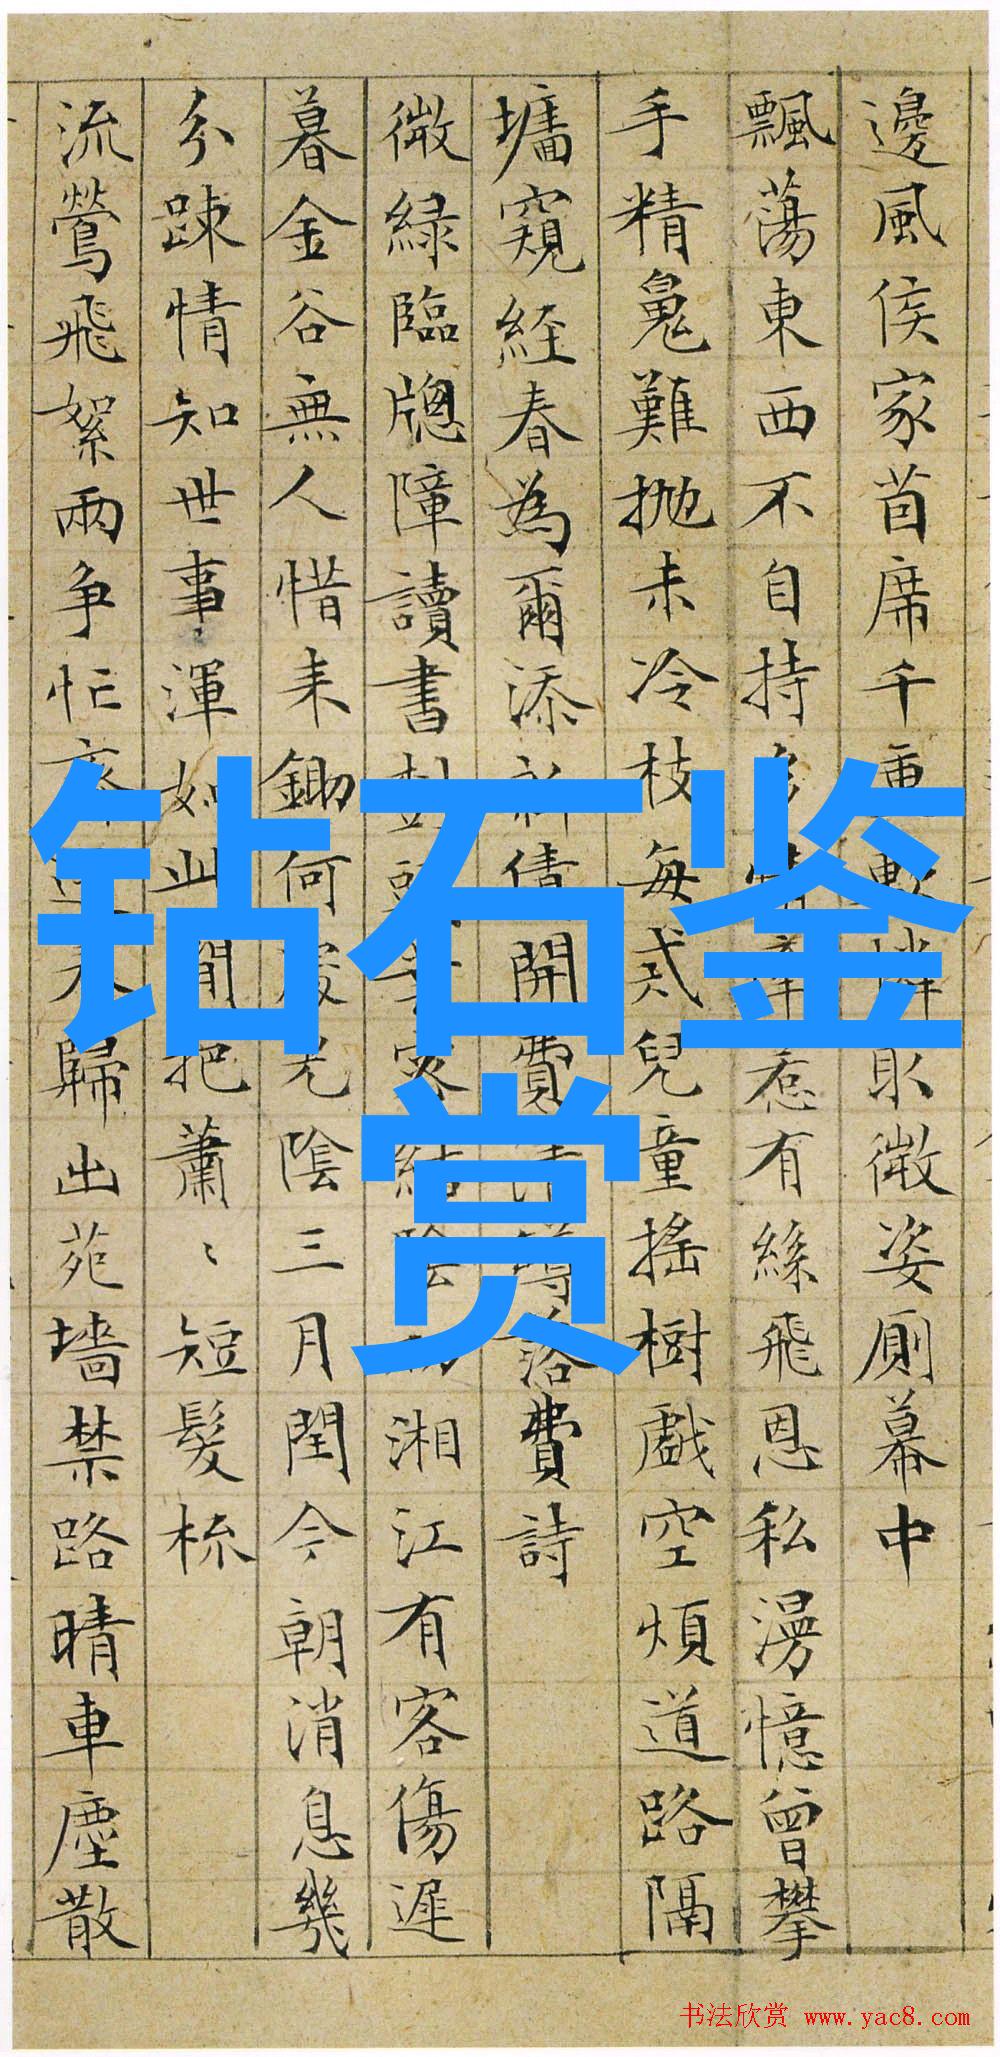 邊風侯家茵席千重憐取微姿厠幕中
飄蕩東西不自持惹有絲飛恩私漫憶曾攀
手精鬼難拋未冷枝每貳兒童搖樹戲空煩道路隔
墻窺経春為爾添新債開費落費詩
微綠臨牕障讀書湘江有客傷遲
暮金谷無人惜耒鋤何光陰三月閏今朝消息幾
分踈情知世事渾如此閒把蕭〻短髮梳
流鶯飛絮兩爭忙歸出苑墻禁路晴車塵散
钻石鉴
赏
书法欣赏 www.yac8.com